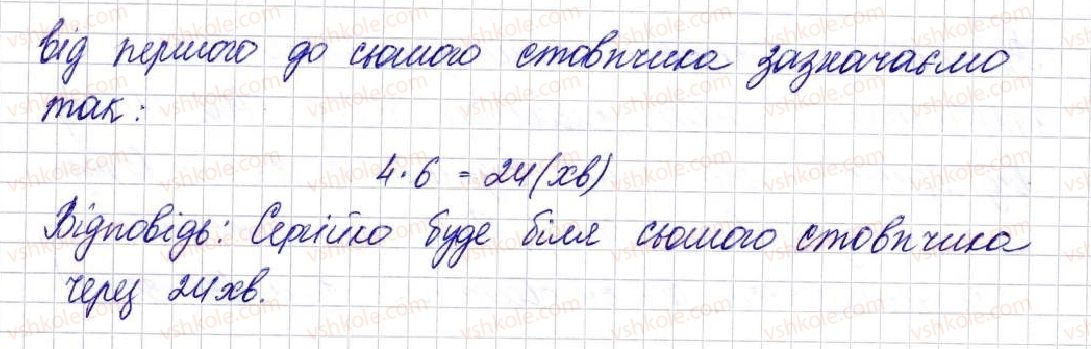 від першого до сьомого стовпчика зазначаємо
так:
4·6 = 24(хв)
Відповідь: Сергійко буде біля сьомого стовпчика
через 24хв.